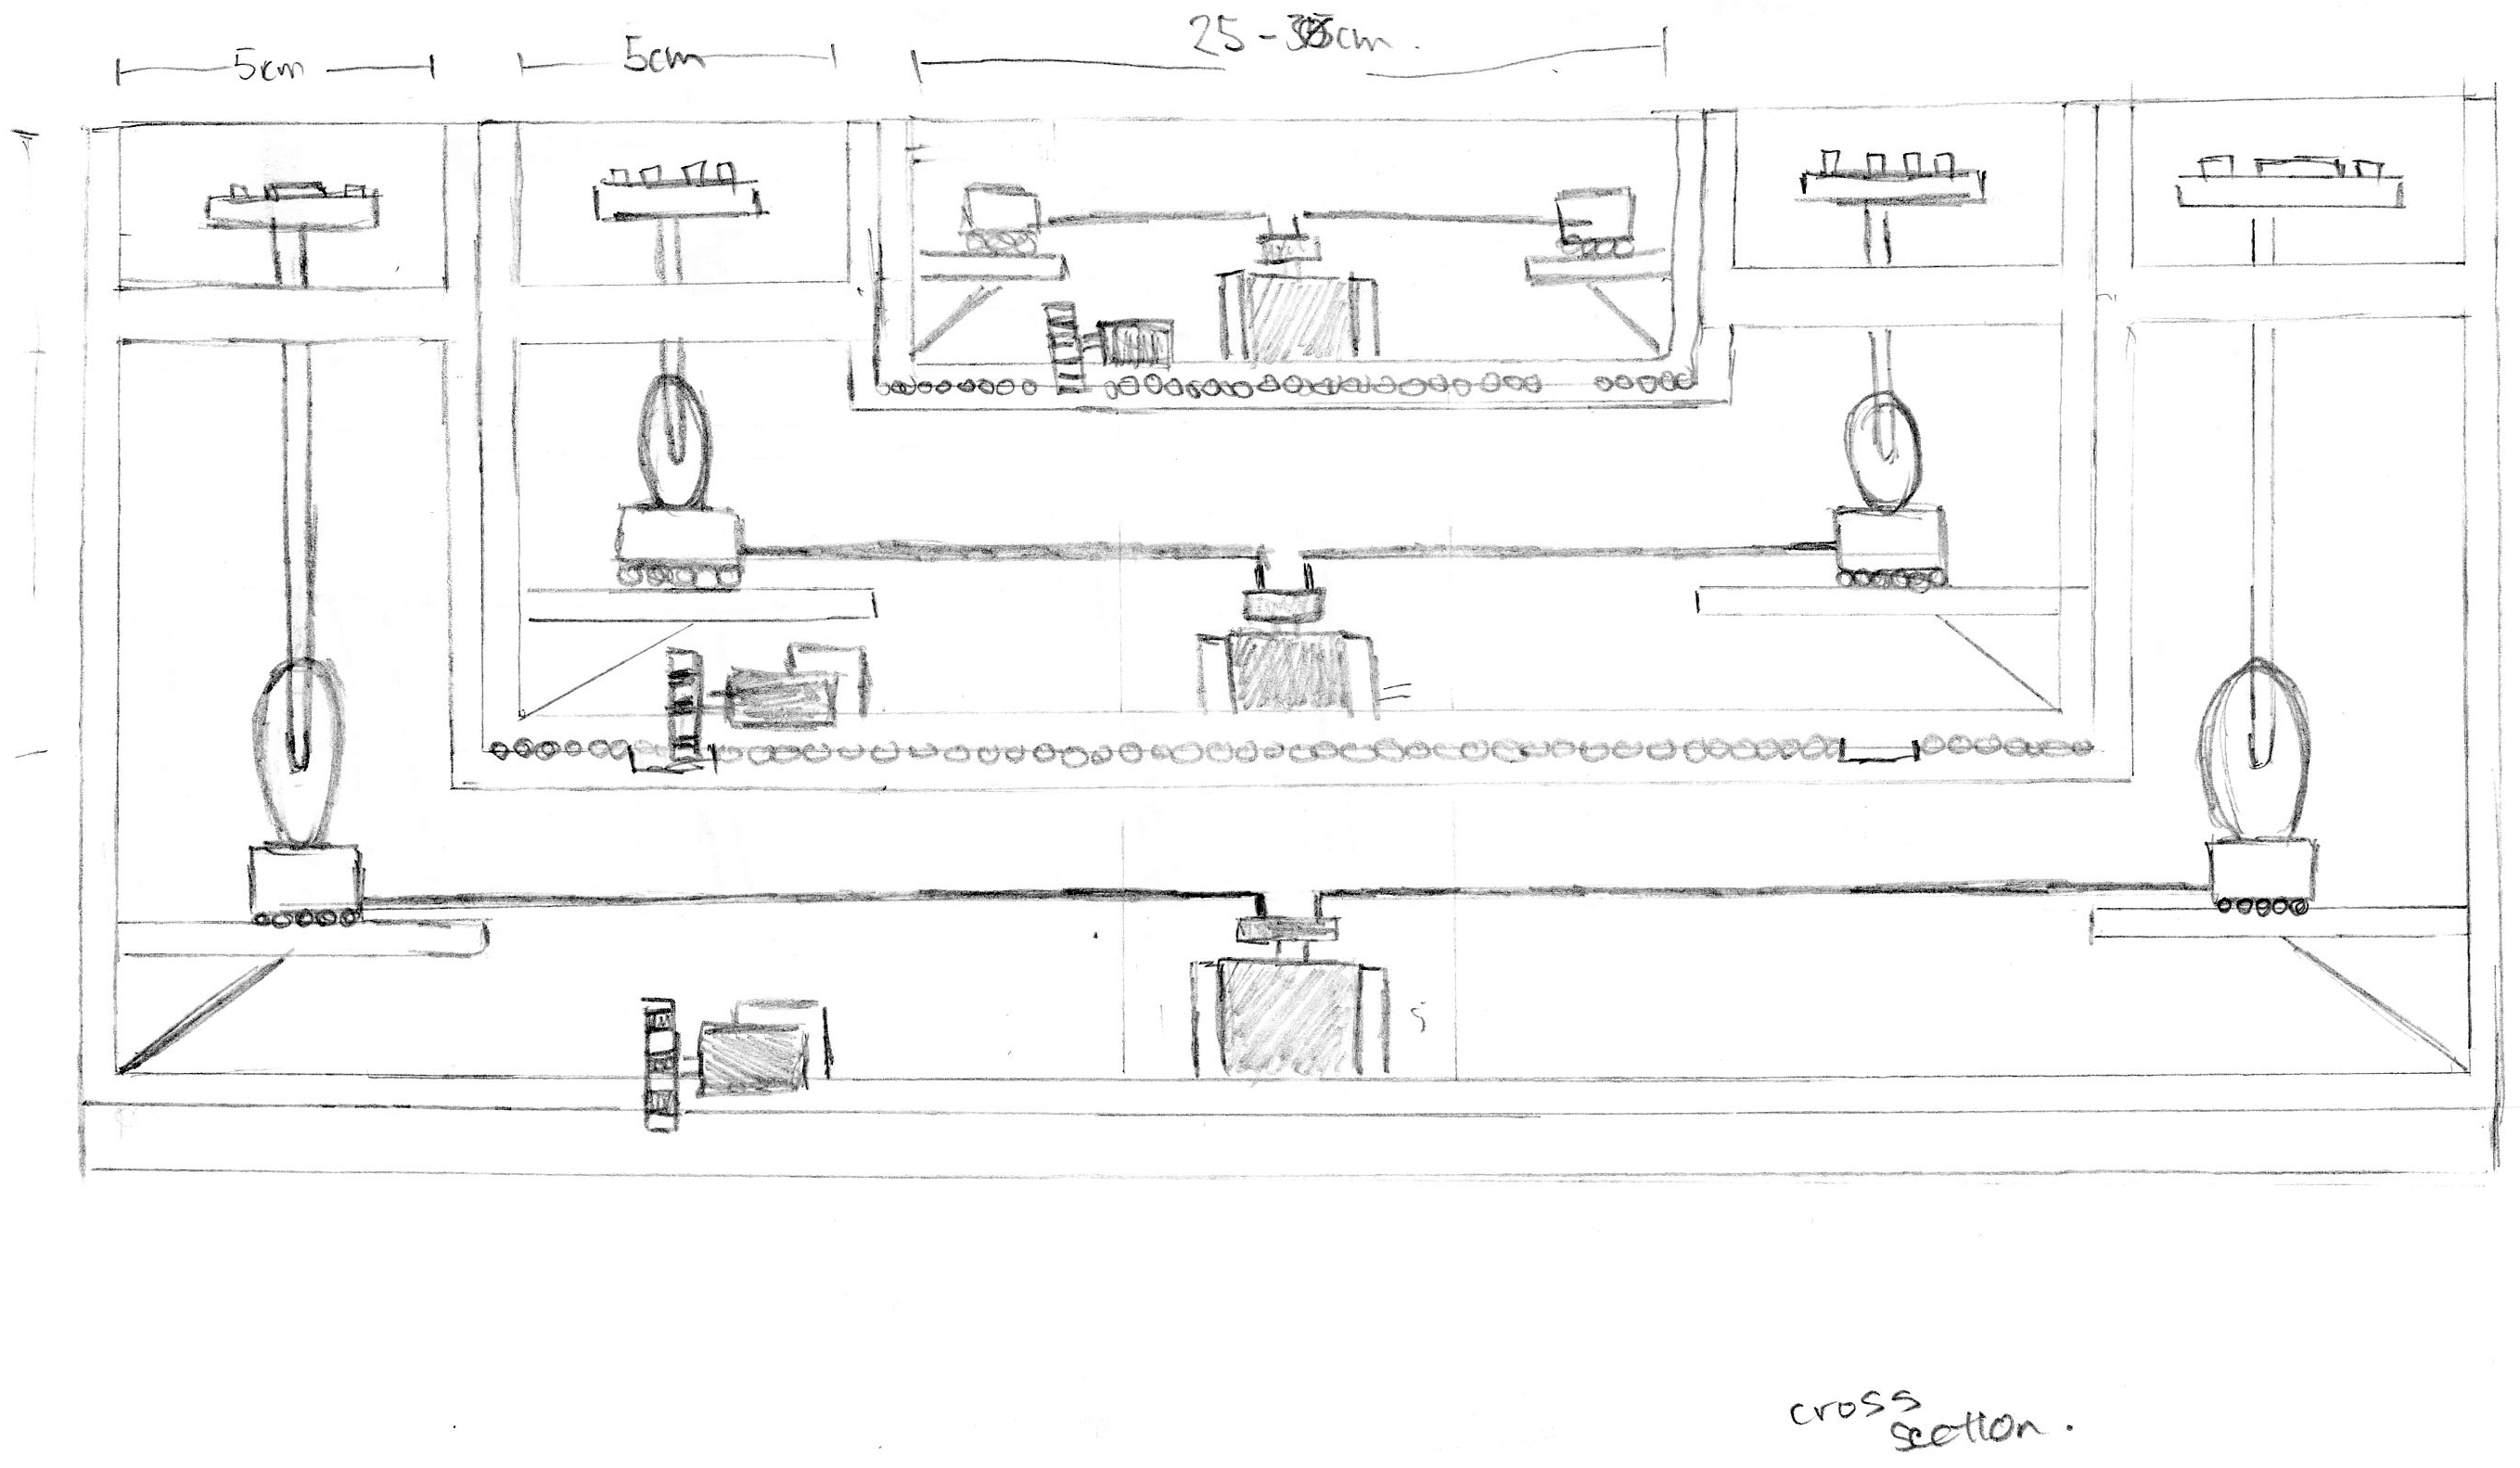 5cm
5cm
25 - cm.
cross
section.